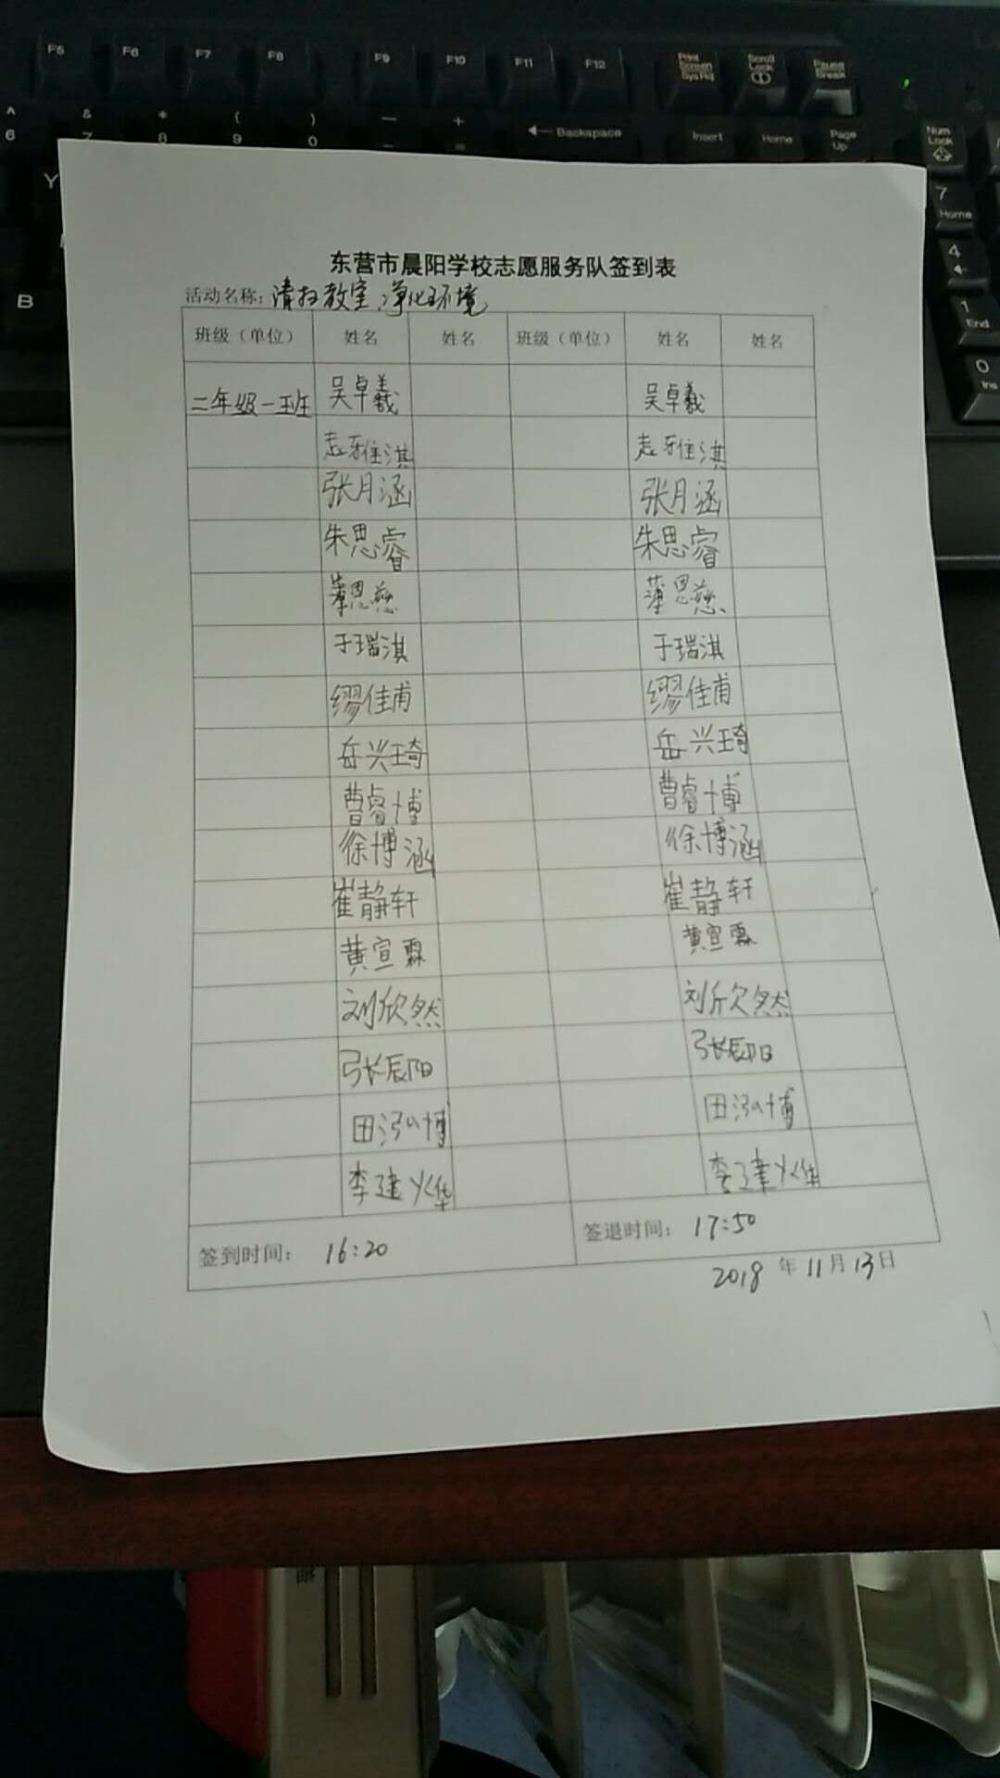 F5 F6 F7 F8 F9 F10 F11 F12 Print Screen SysRq Scroll Lock Pause Break
^ & * ( ) — +
6 7 8 9 0 – = ← Backspace Insert Home Page Up Num Lock
Y 7 Home
4 ←
B 1 End
0 Ins
东营市晨阳学校志愿服务队签到表
活动名称：清扫教室、净化环境
班级（单位） 姓名 姓名 班级（单位） 姓名 姓名
二年级一班 吴卓羲 吴卓羲
志雅淇 志雅淇
张月涵 张月涵
朱思睿 朱思睿
薄思慈 薄思慈
于瑞淇 于瑞淇
缪佳甫 缪佳甫
岳兴琦 岳兴琦
曹睿博 曹睿博
徐博涵 徐博涵
崔静轩 崔静轩
黄宣霖 黄宣霖
刘欣然 刘欣然
张辰阳 张辰阳
田泓博 田泓博
李建烨 李建烨
签到时间： 16:20 签退时间： 17:50
2018 年 11 月 13 日